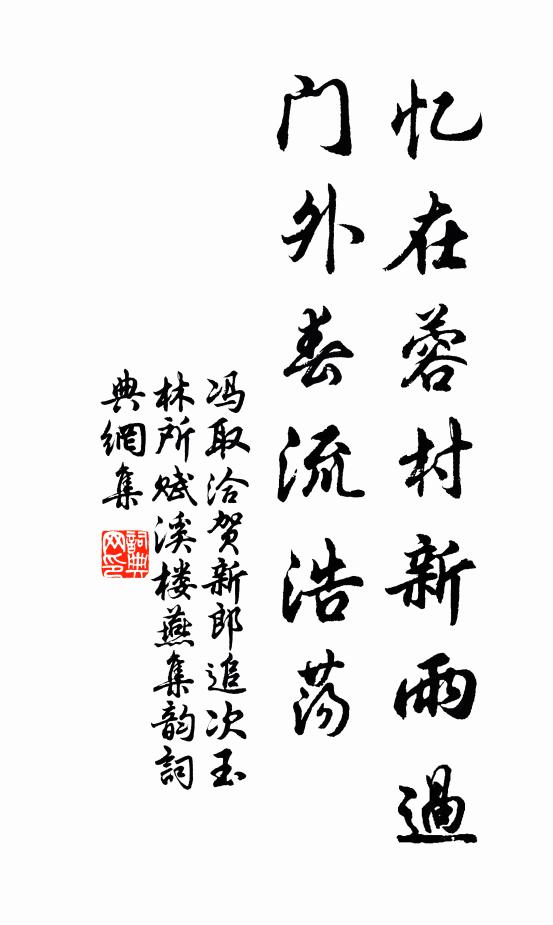 忆在蓉村新雨過
门外春流浩荡
冯取洽贺新郎追次玉
林所赋溪楼燕集韵詞
典網集
詞典
网印